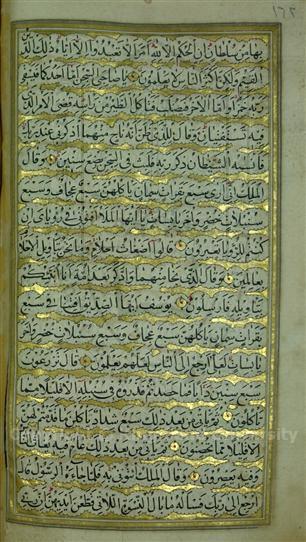 ١٦٢
بها من سلطان ان الحكم الا لله امر الا تعبدوا الا اياه ذلك الدين
القيم ولكن اكثر الناس لا يعلمون يا صاحبي السجن اما احدكما فيسقي
ربه خمرا واما الاخر فيصلب فتأكل الطير من رأسه قضي الامر الذي
فيه تستفتيان وقال للذي ظن انه ناج منهما اذكرني عند ربك
فانسيه الشيطان ذكر ربه فلبث في السجن بضع سنين وقال
الملك اني ارى سبع بقرات سمان يأكلهن سبع عجاف وسبع
سنبلات خضر واخر يابسات يا ايها الملأ افتوني في رؤياي ان
كنتم للرؤيا تعبرون قالوا اضغاث احلام وما نحن بتأويل الاحلام
بعالمين وقال الذي نجا منهما وادكر بعد امة انا انبئكم
بتأويله فارسلون يوسف ايها الصديق افتنا في سبع
بقرات سمان يأكلهن سبع عجاف وسبع سنبلات خضر واخر
يابسات لعلي ارجع الى الناس لعلهم يعلمون قال تزرعون
سبع سنين دأبا فما حصدتم فذروه في سنبله الا قليلا مما
تأكلون ثم يأتي من بعد ذلك سبع شداد يأكلن ما قدمتم لهن
الا قليلا مما تحصنون ثم يأتي من بعد ذلك عام فيه يغاث الناس
وفيه يعصرون وقال الملك ائتوني به فلما جاءه الرسول قال
ارجع الى ربك فاسأله ما بال النسوة اللاتي قطعن ايديهن ان ربي